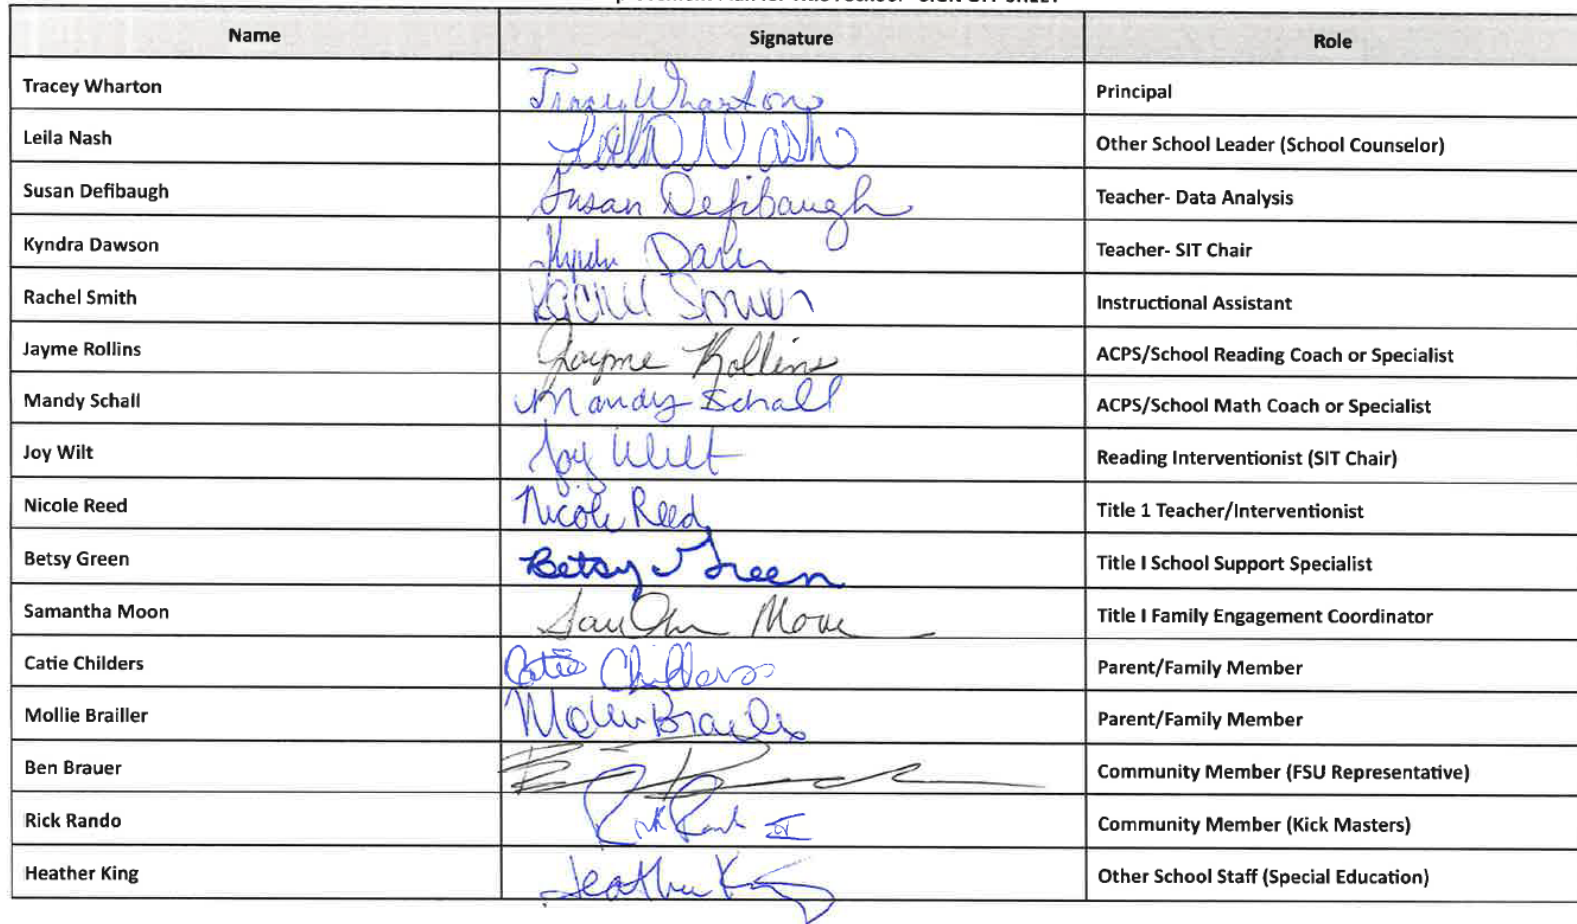 Name Signature Role
Tracey Wharton Tracey Wharton Principal
Leila Nash Leila Nash Other School Leader (School Counselor)
Susan Defibaugh Susan Defibaugh Teacher- Data Analysis
Kyndra Dawson Teacher- SIT Chair
Rachel Smith Rachel Smith Instructional Assistant
Jayme Rollins Jayme Rollins ACPS/School Reading Coach or Specialist
Mandy Schall Mandy Schall ACPS/School Math Coach or Specialist
Joy Wilt Joy Wilt Reading Interventionist (SIT Chair)
Nicole Reed Nicole Reed Title 1 Teacher/Interventionist
Betsy Green Betsy Green Title I School Support Specialist
Samantha Moon Title I Family Engagement Coordinator
Catie Childers Catie Childers Parent/Family Member
Mollie Brailler Parent/Family Member
Ben Brauer Community Member (FSU Representative)
Rick Rando Community Member (Kick Masters)
Heather King Heather King Other School Staff (Special Education)